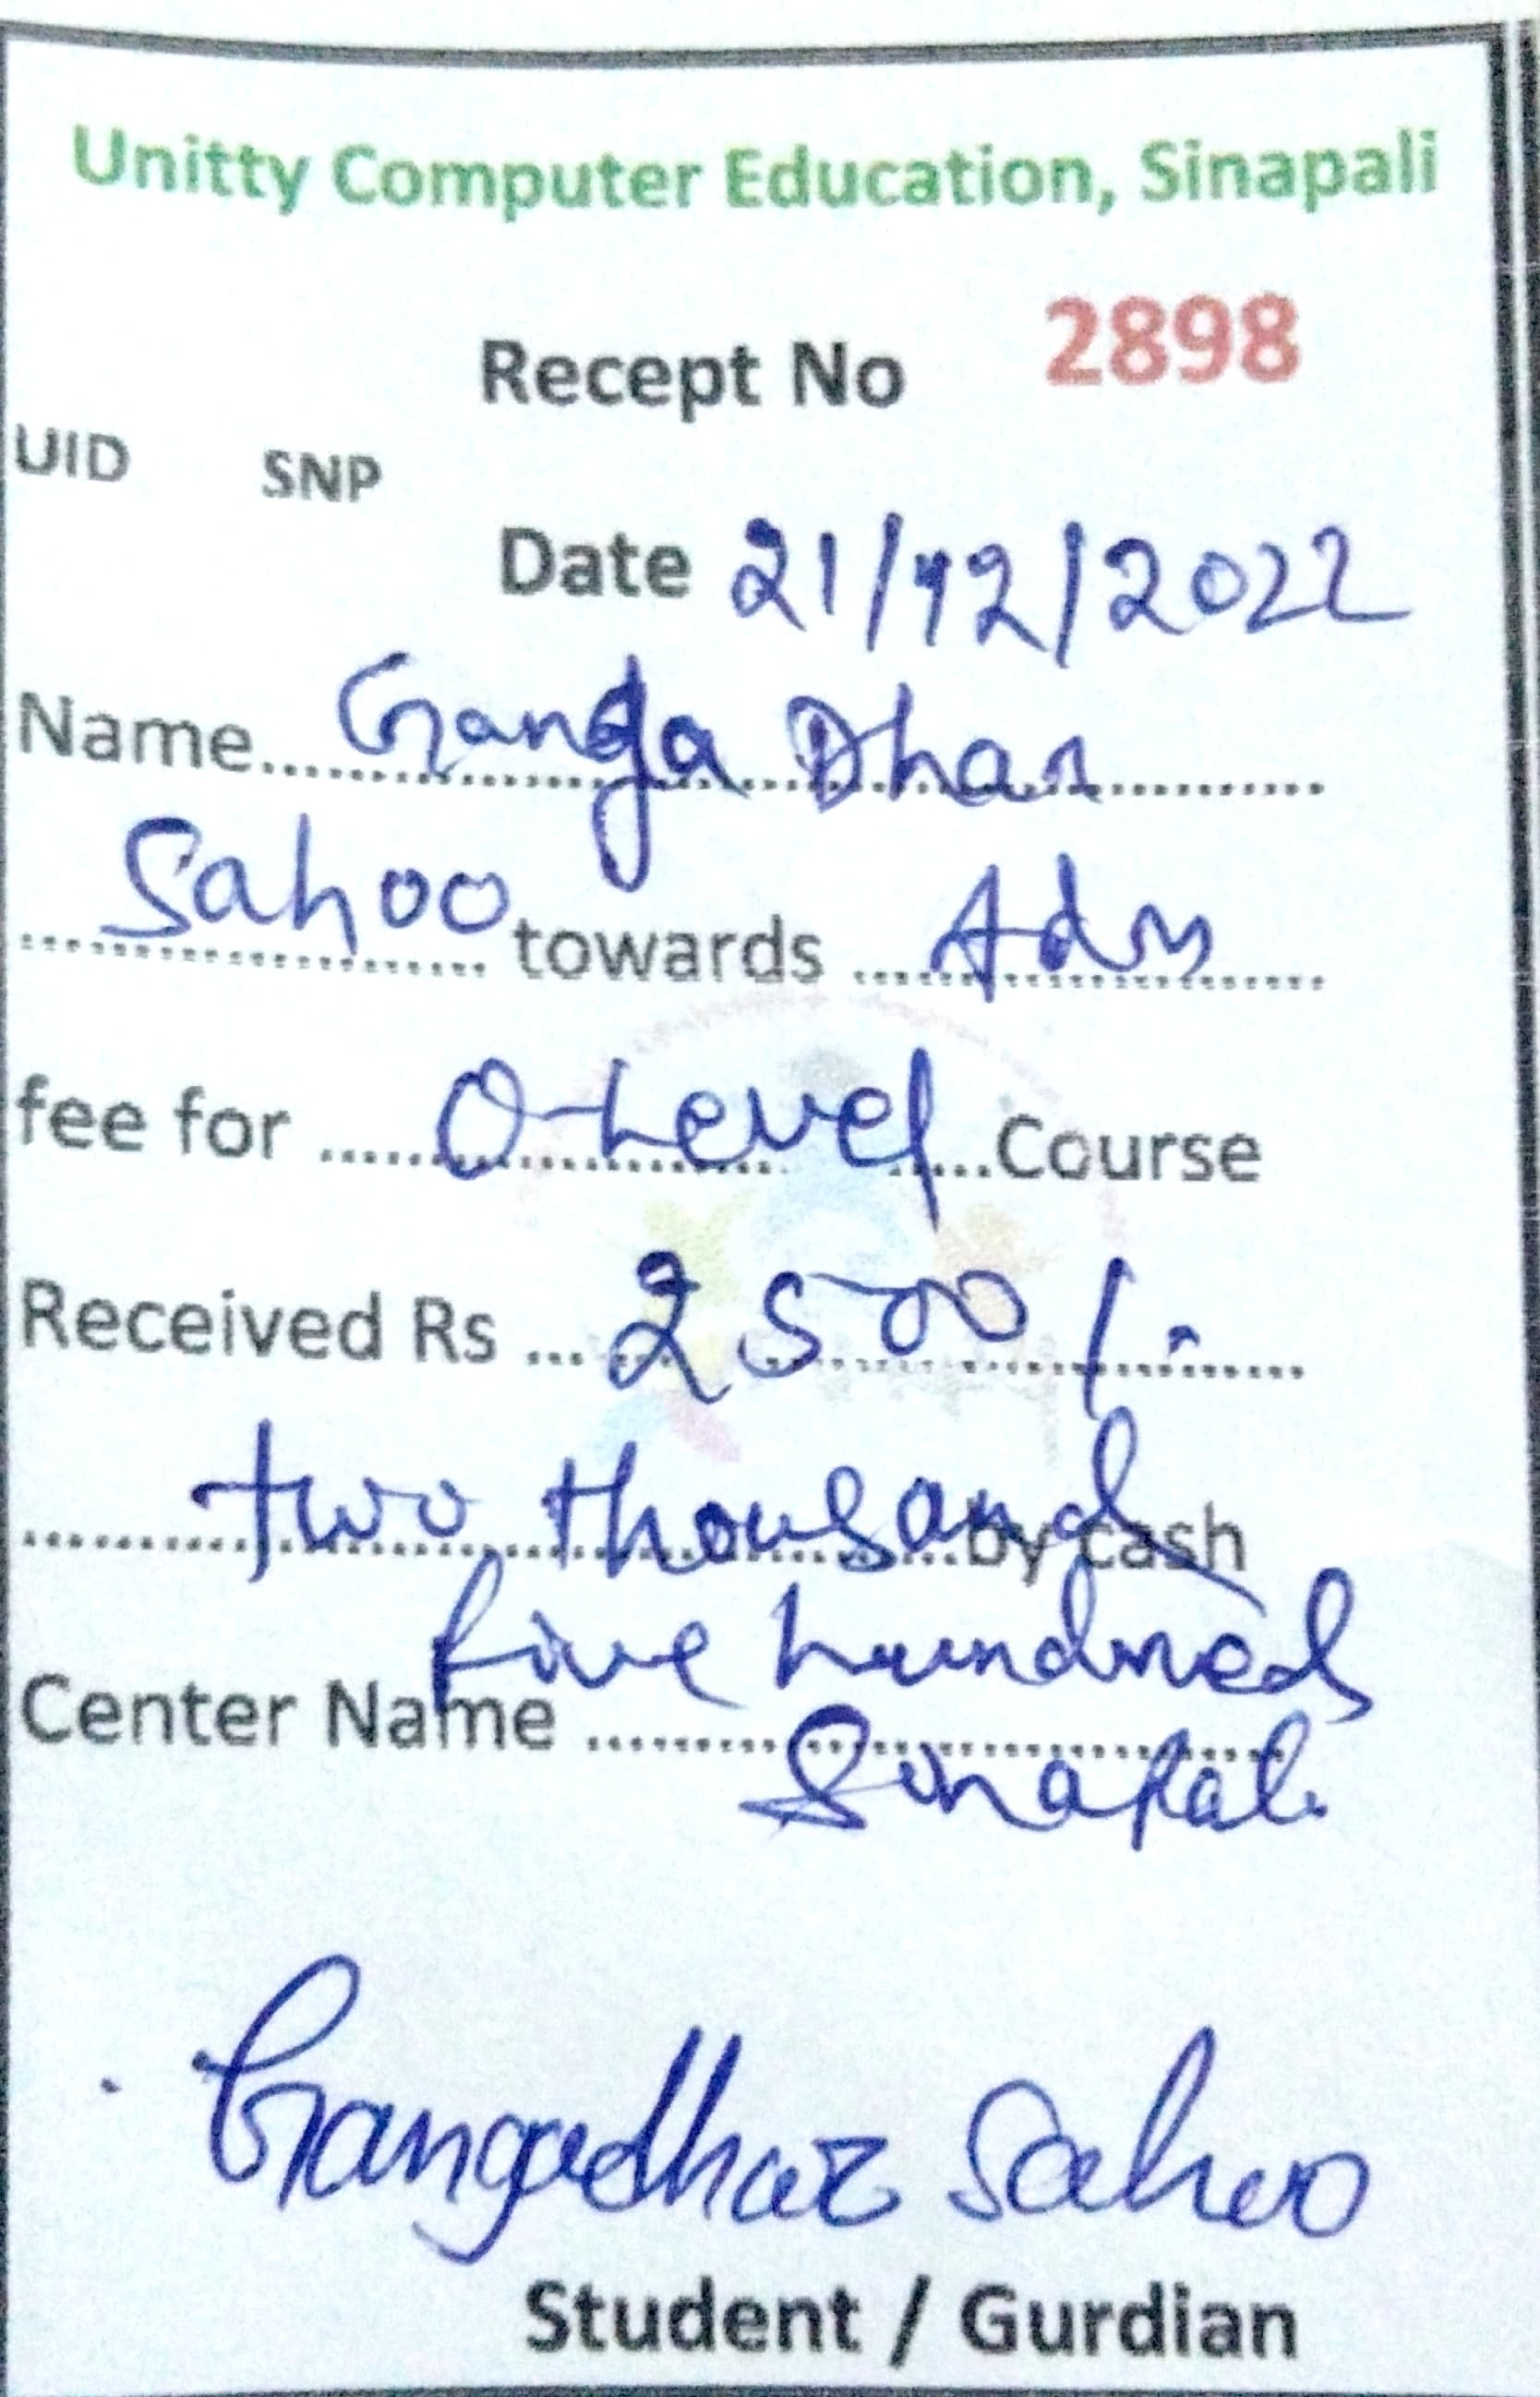 Unitty Computer Education, Sinapali
Recept No 2898
UID SNP
Date 21/12/2022
Name.....Ganga Dhar.....
.....Sahoo.....towards.....Adm.....
fee for.....O-Level.....Course
Received Rs.....2500/-.....
.....two thousand.....by cash
five hundred
Center Name.....
Sinapali
Gangadhar Sahoo
Student / Gurdian